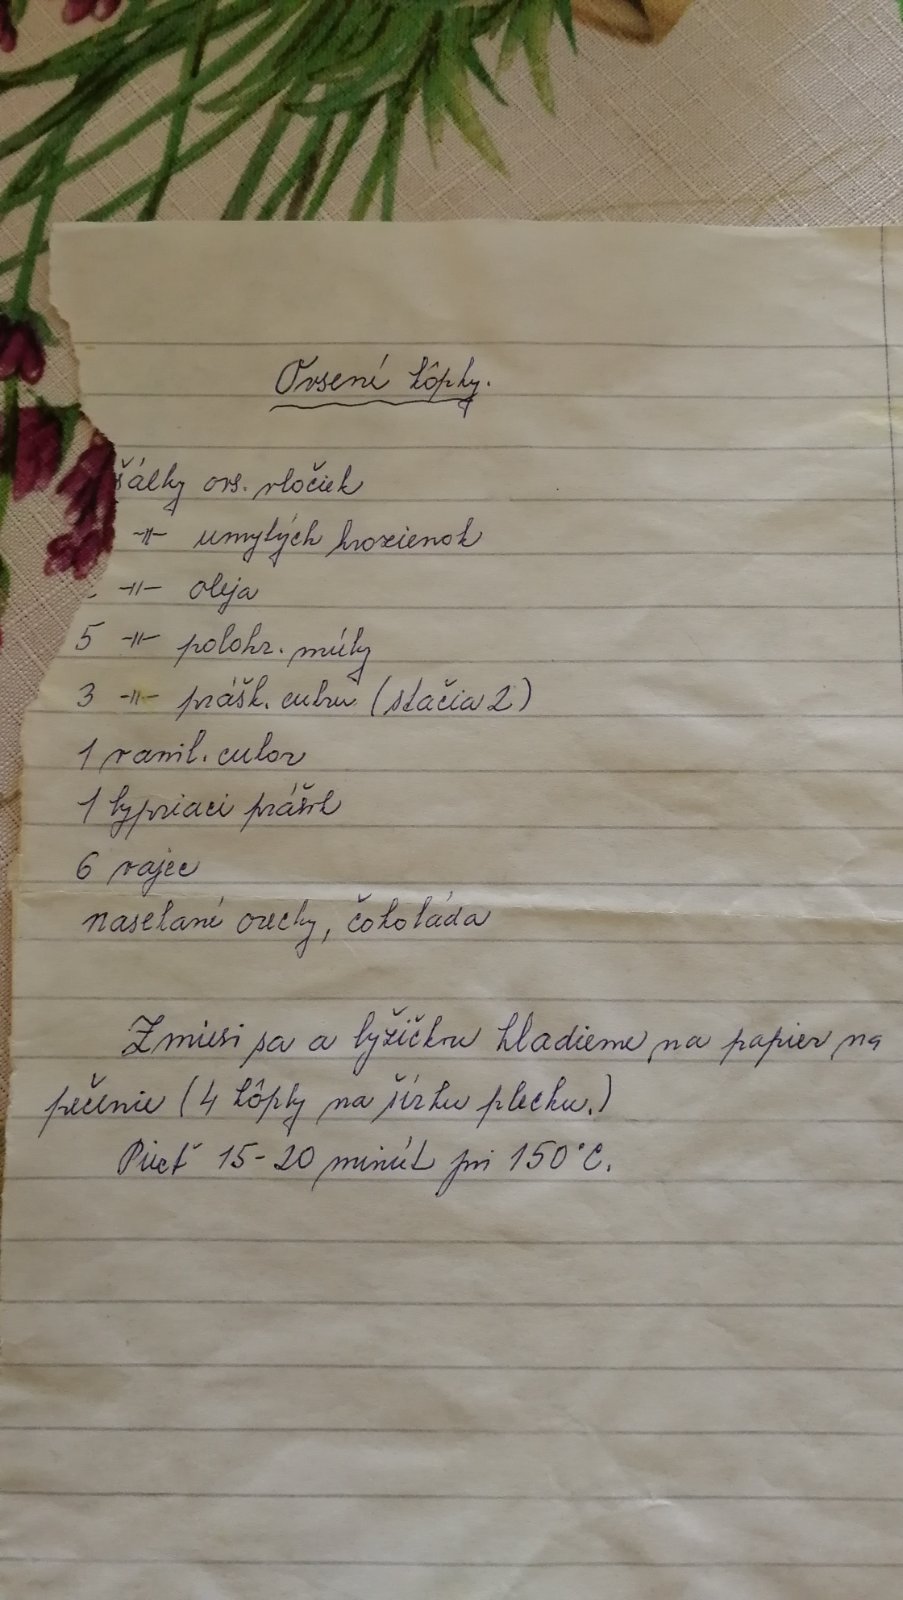 Ovsené kôpky.
šálky ovs. vločiek
-"- umytých hrozienok
-"- oleja
5 -"- polohr. múky
3 -"- prášk. cukru (stačia 2)
1 vanil. cukor
1 kypriaci prášok
6 vajec
nasekané orechy, čokoláda
Zmiesi sa a lyžičkou kladieme na papier na
pečenie (4 kôpky na šírku plechu.)
Piecť 15-20 minút pri 150°C.